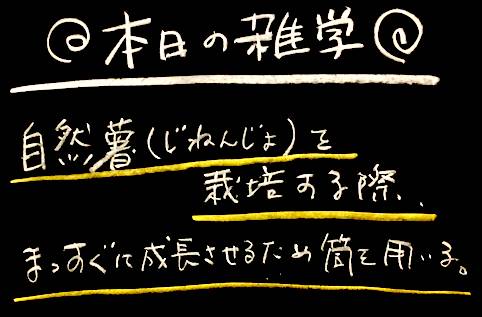 @本日の雑学@
自然薯(じねんじょ)を
栽培する際、
まっすぐに成長させるため筒を用いる。